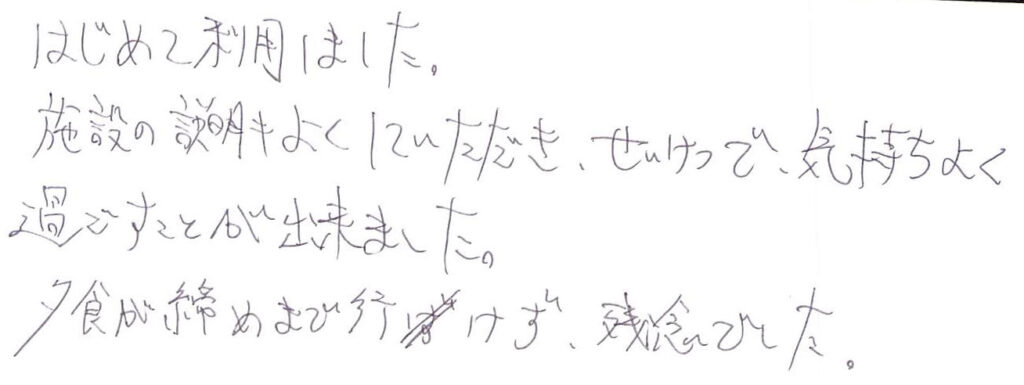 はじめて利用しました。
施設の説明もよくしていただき、せいけつで、気持ちよく
過ごすことが出来ました。
夕食が締めまで行けず、残念でした。